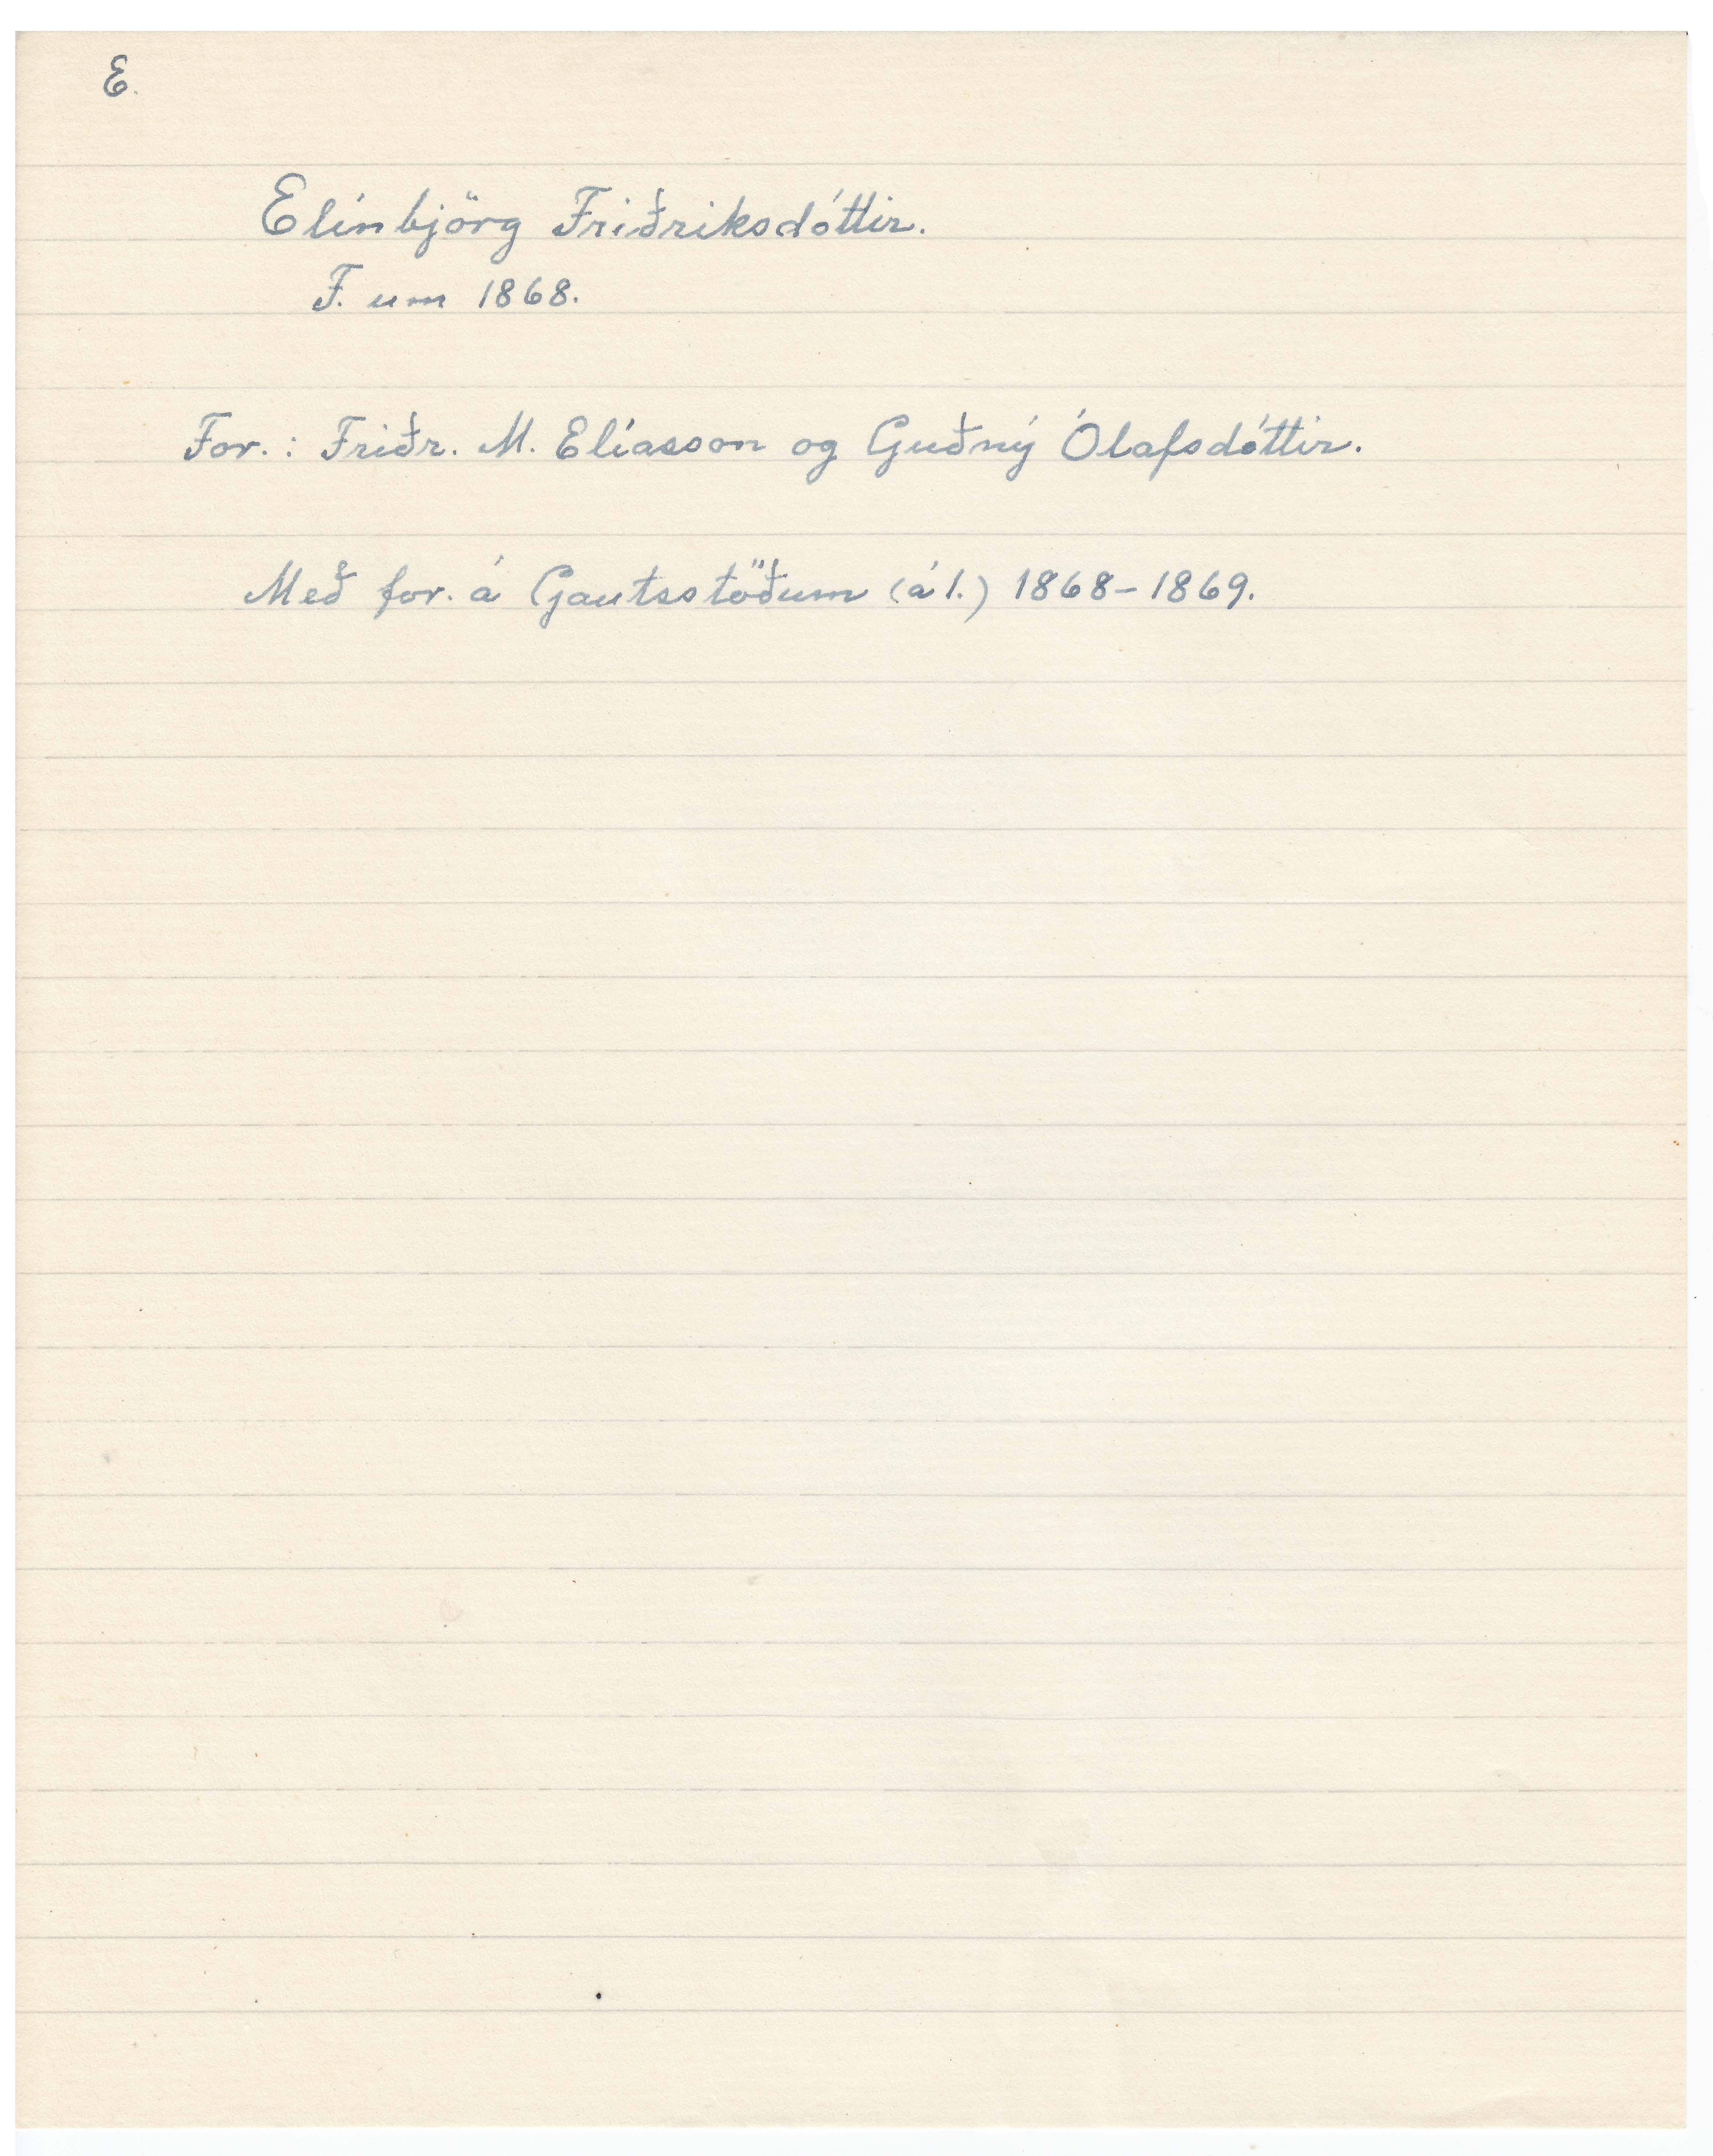 E.
Elínbjörg Friðriksdóttir.
F. um 1868.
For.: Friðr. M. Elíasson og Guðný Ólafsdóttir.
Með for. á Gautsstöðum (á 1.) 1868-1869.